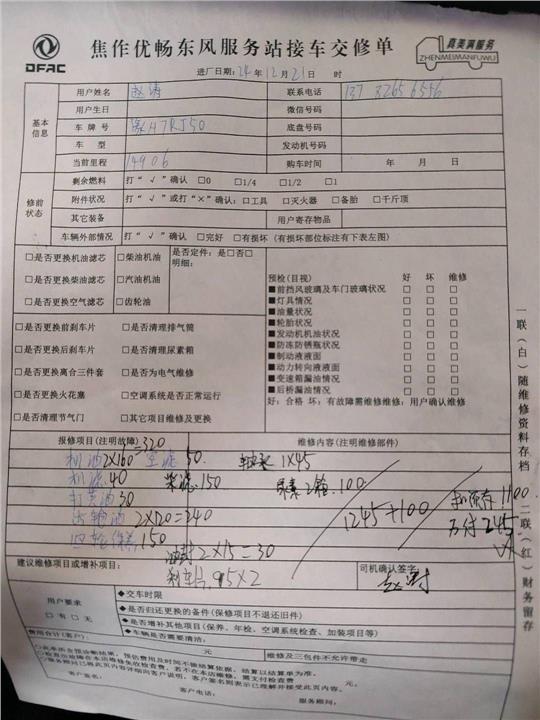 DFAC
焦作优畅东风服务站接车交修单
真美满服务
ZHENMEIMANFUWU
进厂日期：24年12月21日 时
基本信息
用户姓名 赵涛 联系电话
用户生日 微信号码
车牌号 豫H7RJ50 底盘号码
车型 发动机号码
当前里程 14906 购车时间 年 月 日
修前状态
剩余燃料 打“√”确认 □0 □1/4 □1/2 □1
附件状况 打“√”或打“×”确认：□工具 □灭火器 □备胎 □千斤顶
其它装备 用户寄存物品
车辆外部情况 打“√”确认 □完好 □有损坏（有损坏部位标注有下表左图）
□是否更换机油滤芯 □柴油机油 是否定件：是□否□
明细：
□是否更换柴油滤芯 □汽油机油
□是否更换空气滤芯 □齿轮油
预检(目视) 好 坏 维修
■前挡风玻璃及车门玻璃状况 □ □ □
■灯具情况 □ □ □
■油量状况 □ □ □
■轮胎状况 □ □ □
■发动机机油状况 □ □ □
■防冻防锈瓶状况 □ □ □
■制动液液面 □ □ □
■动力转向液液面 □ □ □
■变速箱漏油情况 □ □ □
■后桥漏油情况 □ □ □
好：合格 坏：有故障需维修维修：用户确认维修
□是否更换前刹车片 □是否清理排气筒
□是否更换后刹车片 □是否清理尿素箱
□是否更换离合三件套 □是否为电气维修
□是否更换火花塞 □空调系统是否正常运行
□是否清理节气门 □其它项目维修及更换
报修项目(注明故障) 维修内容(注明维修部件)
机油2×160=320 空滤 50.
轴承 1×45
机滤.40 柴滤.150 尿素2箱.100
打黄油 30 1245+100
1100
齿轮油 2×120=240 245
四轮保养150
油封 2×15=30
刹车片.95×2
建议维修项目或增补项目： 司机确认签字：
赵涛
用户要求
□有 □无
◆交车时限
◆是否归还更换的备件(保修项目不退还旧件)
◆是否增补其他项目(保养、年检、空调系统检查、加装项目等)
◆车辆是否需要清洁：
费用合计(客户)： 元 维修及三包件不允许带走
客户签名： 客户电话： 服务顾问：
一联(白)随维修资料存档 二联(红)财务留存